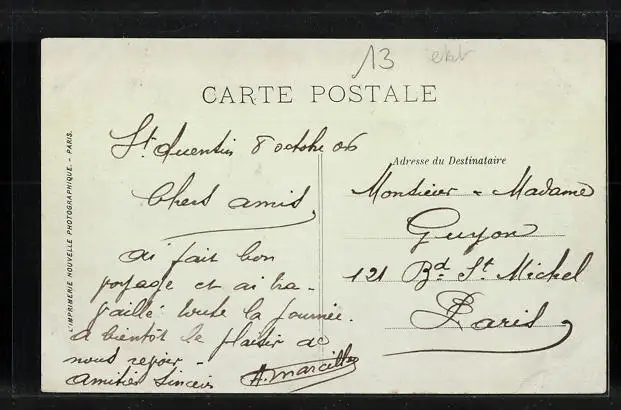 13
CARTE POSTALE
L'IMPRIMERIE NOUVELLE PHOTOGRAPHIQUE. - PARIS.
St Quentin 8 octobre 06
Chers amis,
ai fait bon
voyage et ai tra-
vaillé toute la journée.
a bientôt le plaisir de
nous revoir -
amitiés sincères
A. Marcille
Adresse du Destinataire
Monsieur - Madame
Guyon
121 Bd. St. Michel
Paris